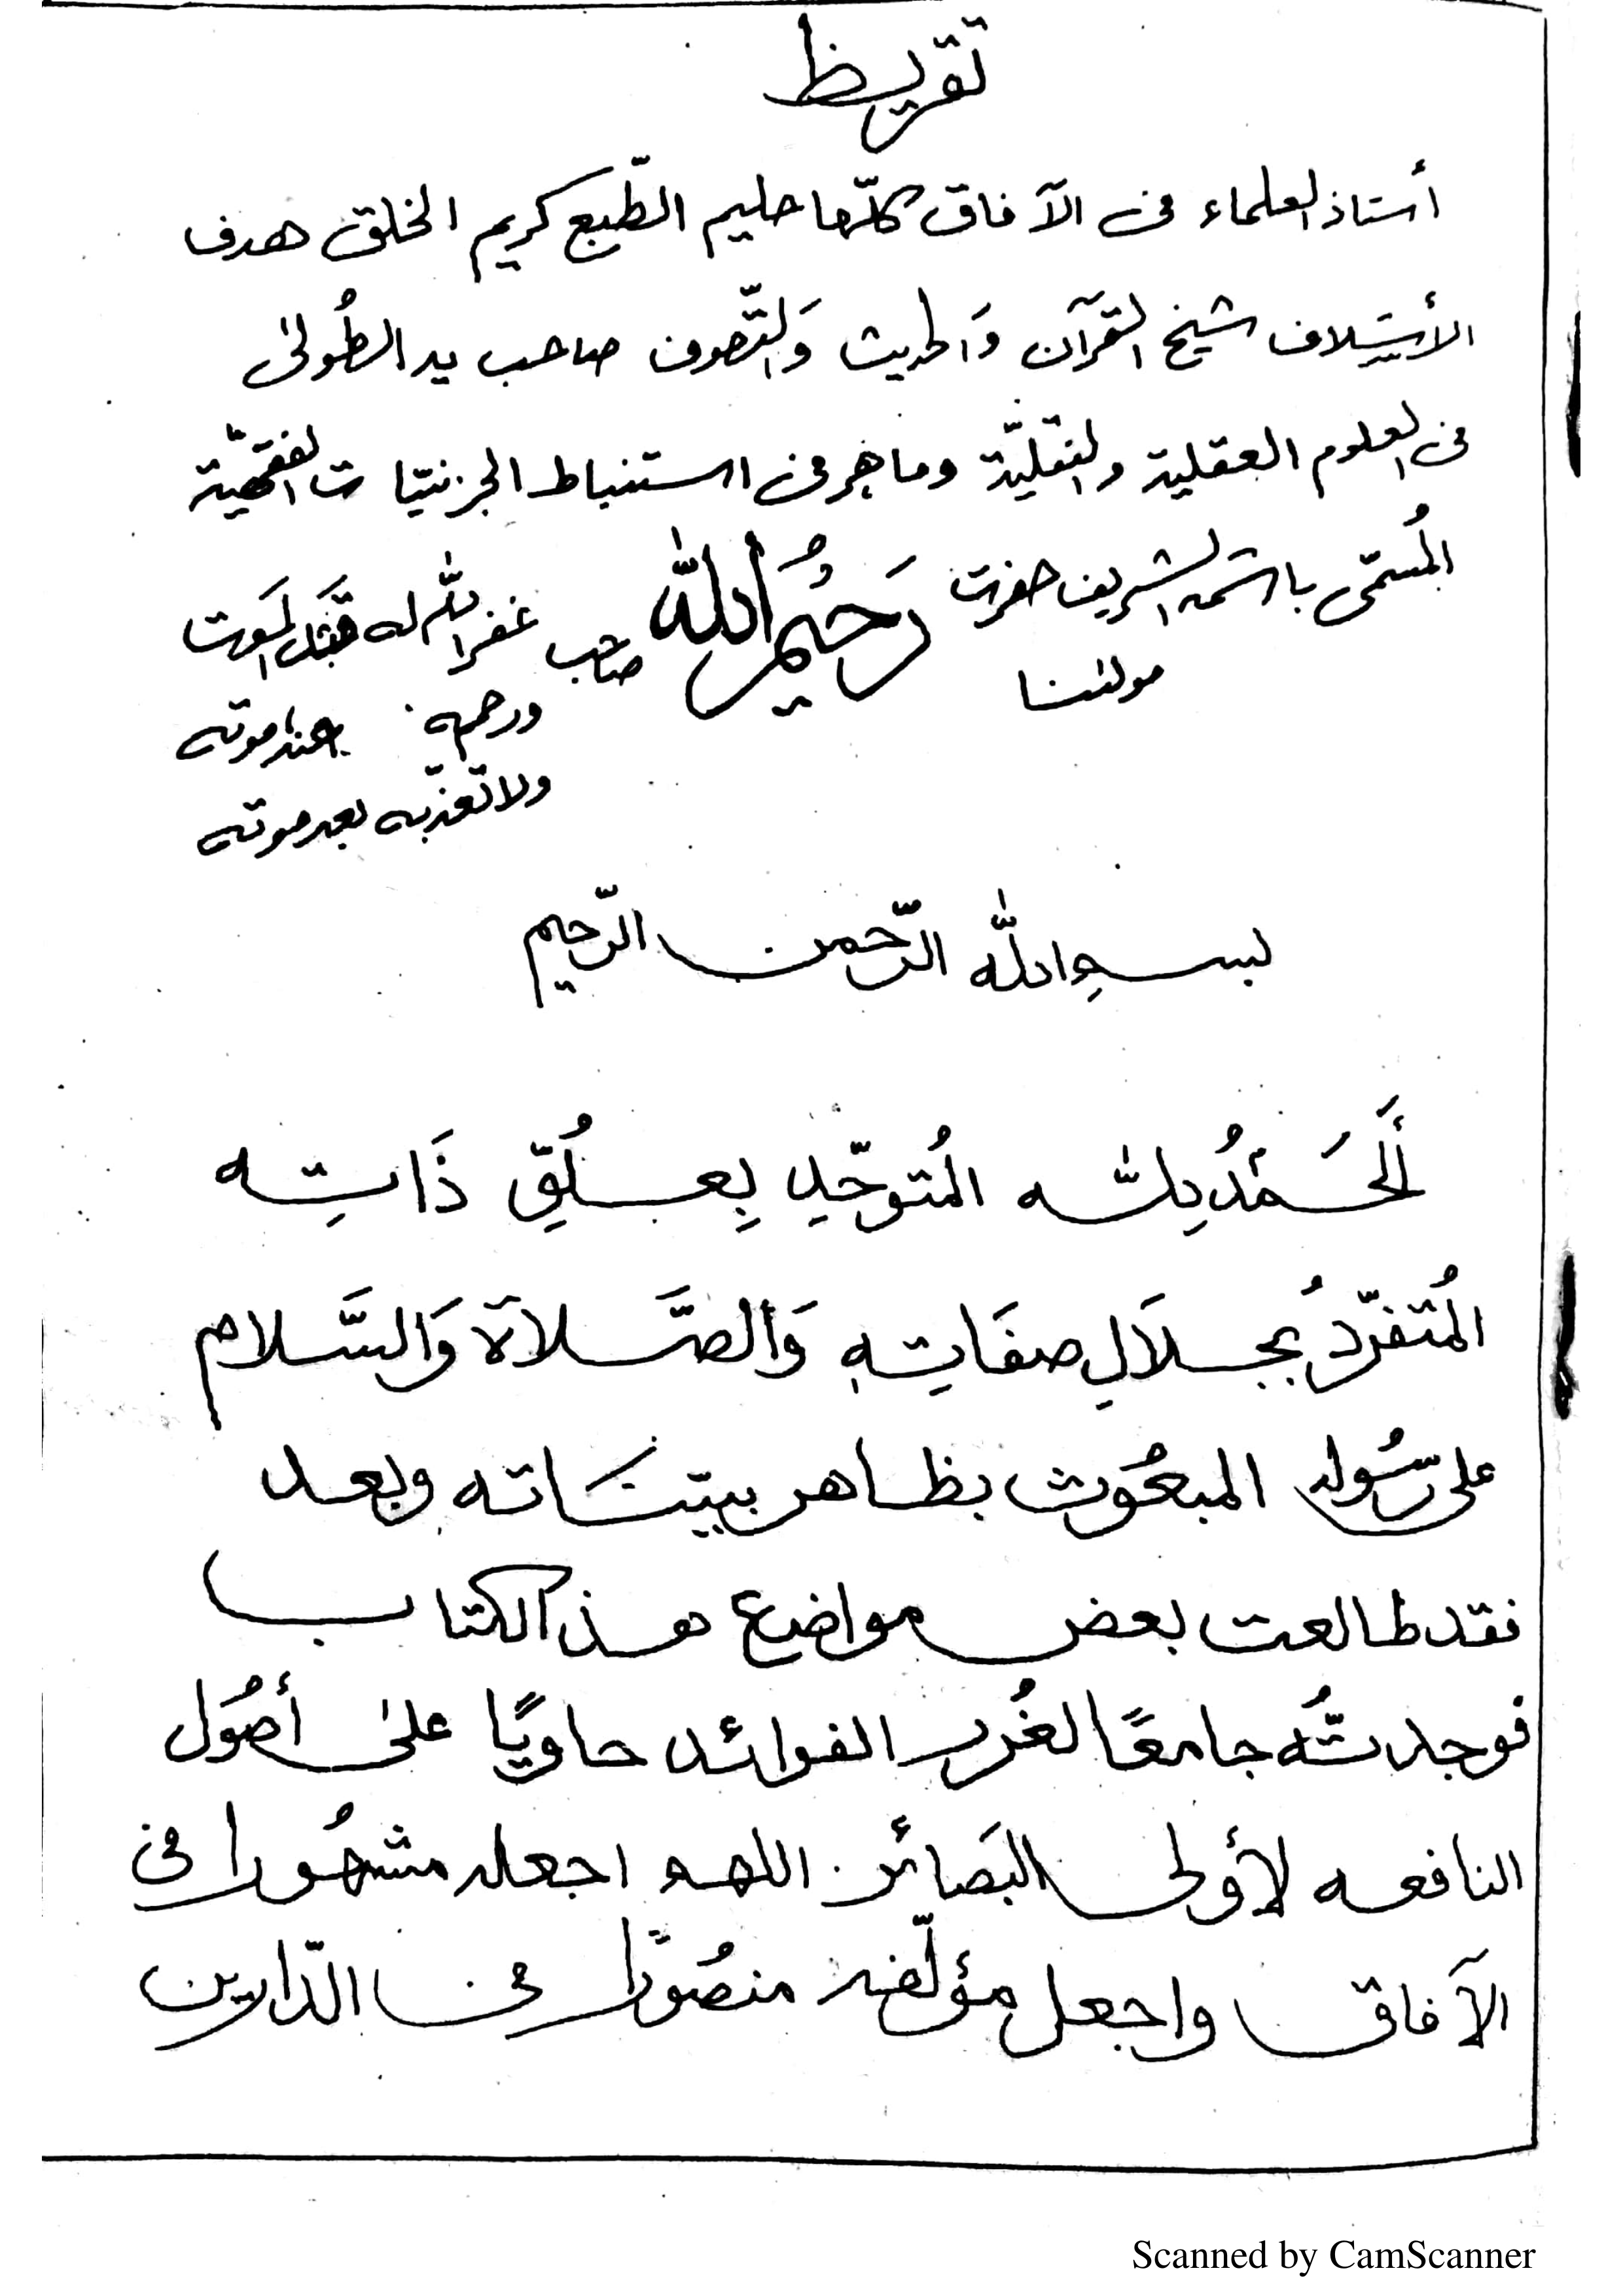 تقريظ
أستاذ العلماء فى الآفاق كلّها حليم الطّبع كريم الخلق هدف
الأسَلاف شيخ القرآن وَالحديث وَالتّصوف صاحب يد الطُولىٰ
فى العلوم العقلية والنقليّة وماهر فى استنباط الجزئيّات الفقهيّة
المُسمّى باسمه الشريف حضرت مولٰنا رَحِيْمُ اللّٰه صاحب غفر اللّٰه له قَبَل المَوت
ورحمه عند موته
ولا تعذّبه بعد موته
بسمِ اللّٰه الرّحمن الرّحيم
أَلحَمْدُ لِلّٰه المُتوحّدِ بِعُلُوِّ ذَاتِه
المُتفرّدُ بجلاَلِ صفَاتِهِ وَالصَّلاة وَالسَّلام
على رّسُوله المبعُوث بظاهر بيّنَاته وبعد
فقد طالعت بعض مواضع هذ الكتاب
فوجدتُّه جامعًا لغُرر الفوائد حاويًا علىٰ أصُول
النافعه لأولى البَصائر اللهم اجعله مشهُورا فى
الآفاق واجعل مؤلّفه منصُورًا فى الدّارين
Scanned by CamScanner